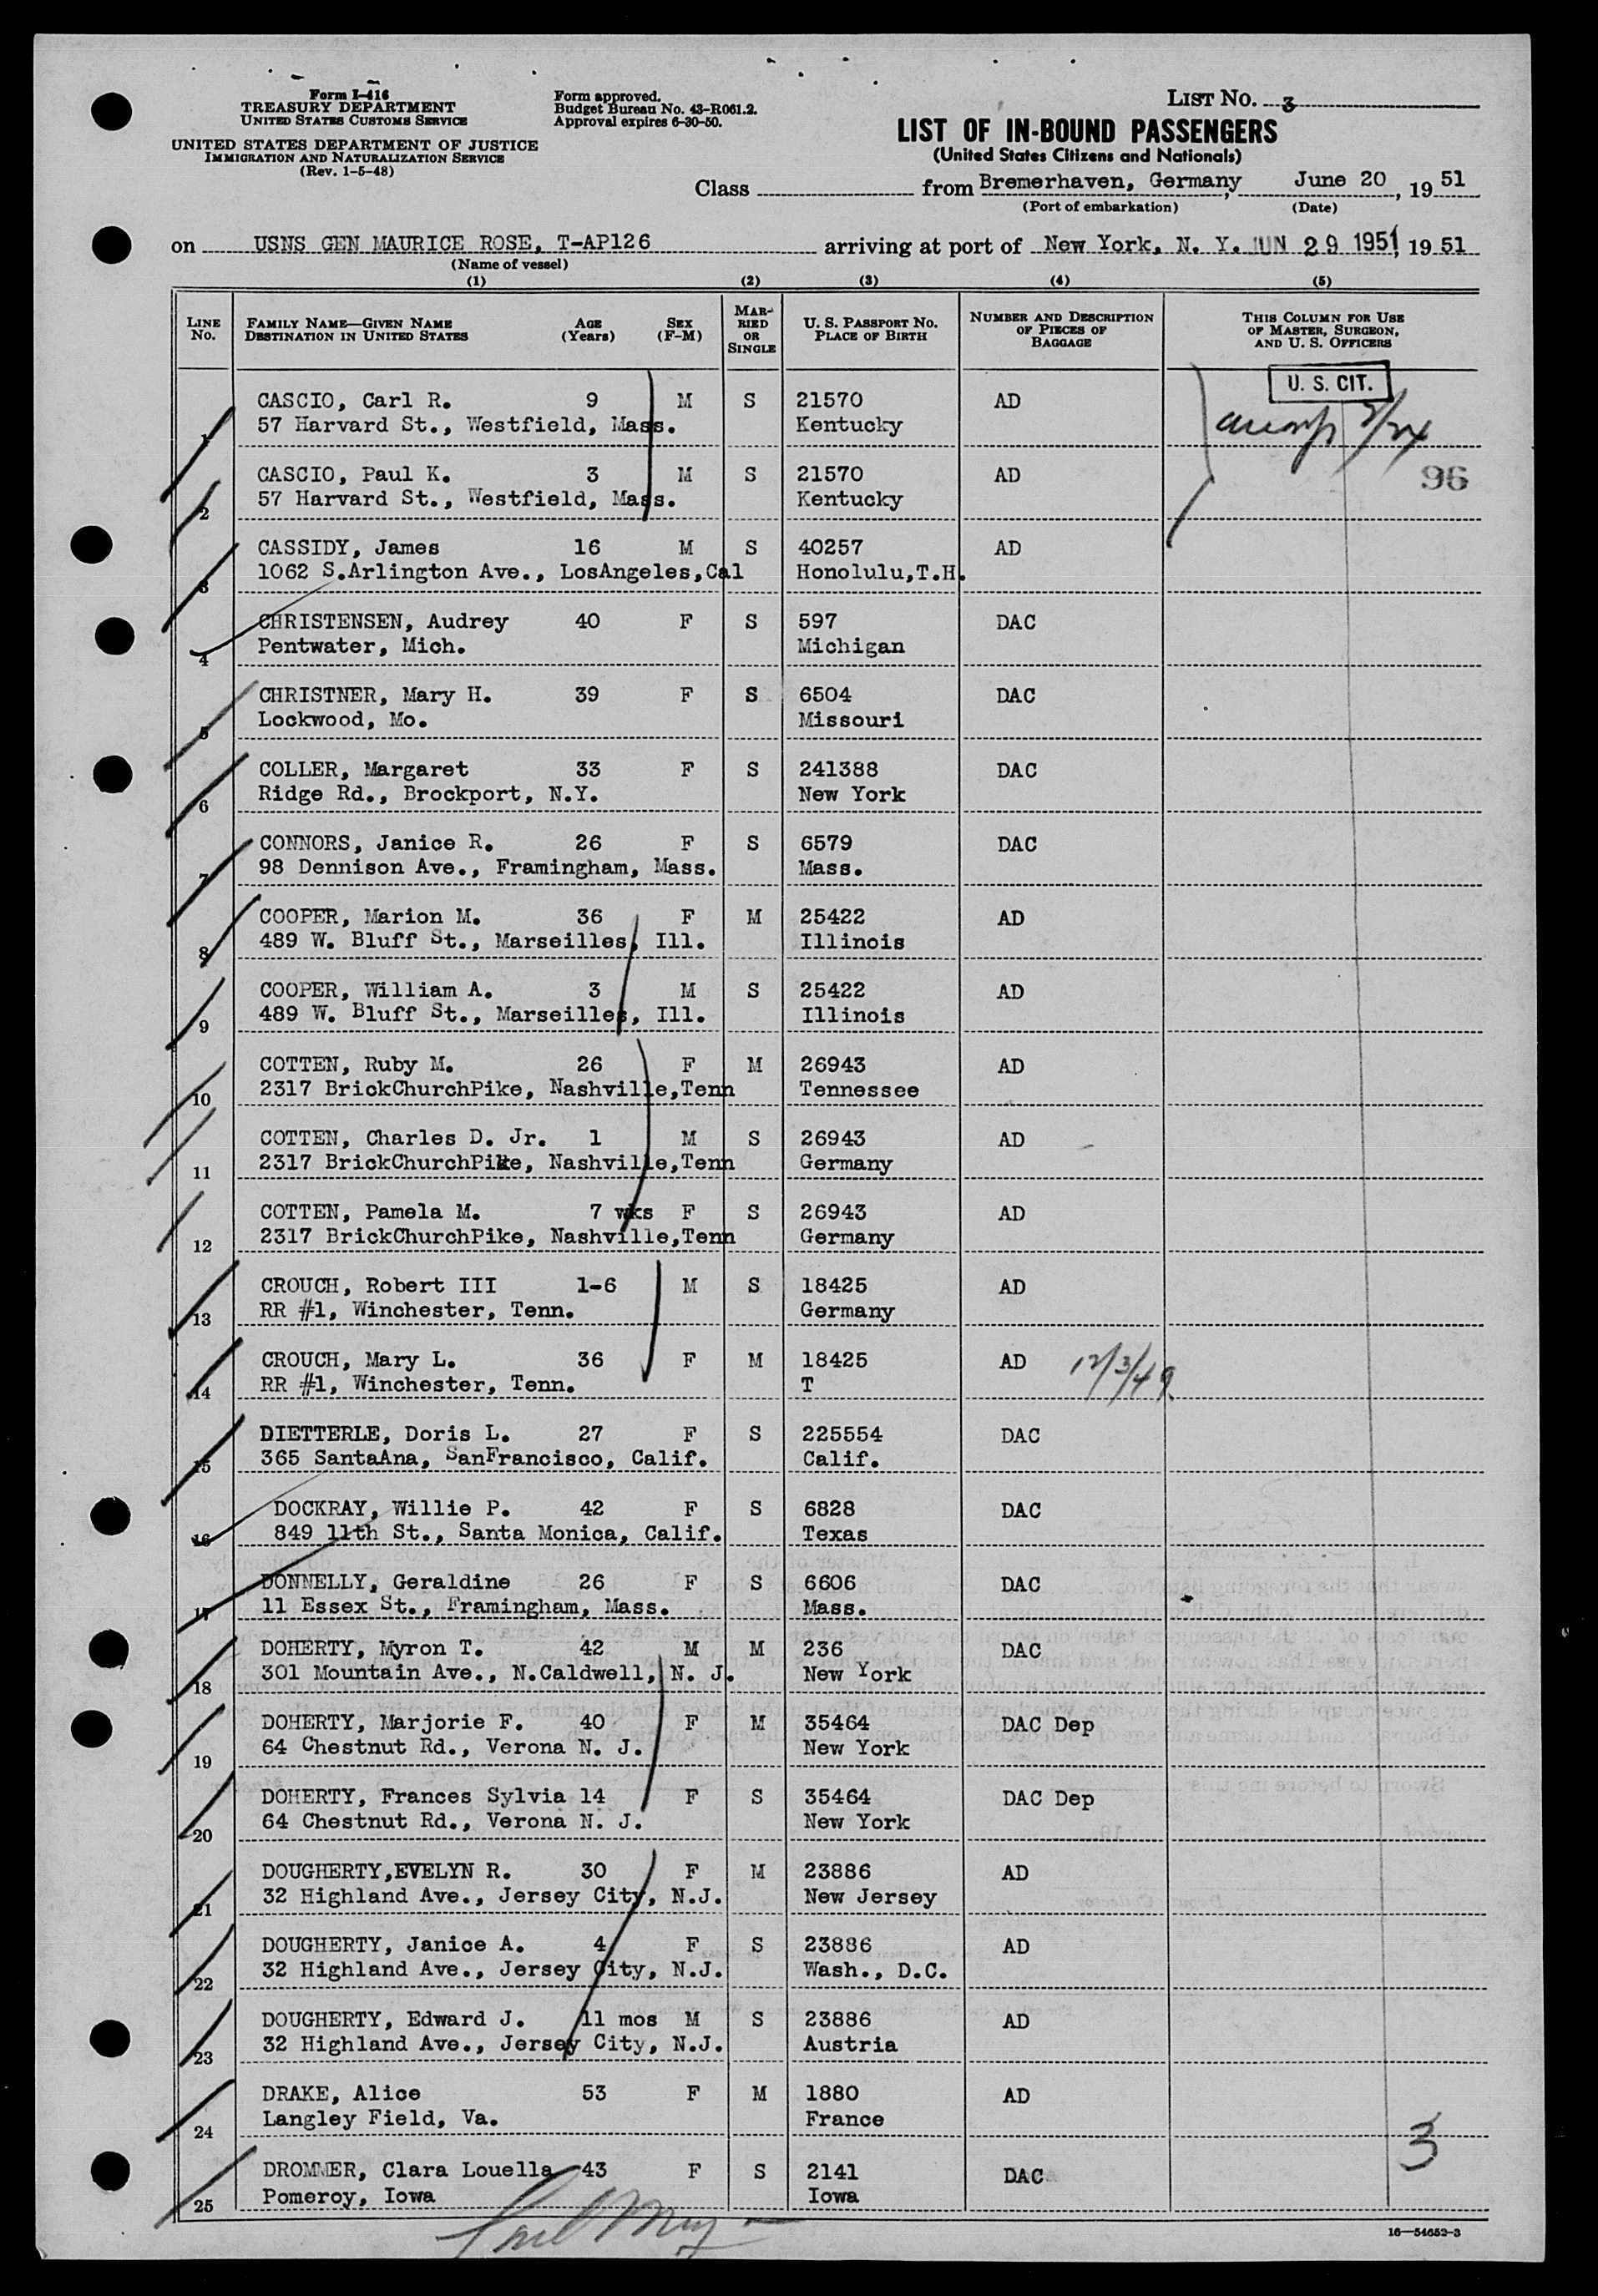 Form I-416
TREASURY DEPARTMENT
UNITED STATES CUSTOMS SERVICE
UNITED STATES DEPARTMENT OF JUSTICE
IMMIGRATION AND NATURALIZATION SERVICE
(Rev. 1-5-48)
Form approved.
Budget Bureau No. 43-R061.2.
Approval expires 6-30-50.
LIST No. 3
LIST OF IN-BOUND PASSENGERS
(United States Citizens and Nationals)
Class from Bremerhaven, Germany, June 20, 19 51
(Port of embarkation) (Date)
on USNS GEN MAURICE ROSE, T-AP126 arriving at port of New York, N. Y. JUN 29 1951, 19 51
(Name of vessel)
(1) (2) (3) (4) (5)
LINE No. FAMILY NAME—GIVEN NAME DESTINATION IN UNITED STATES AGE (Years) SEX (F-M) MARRIED OR SINGLE U. S. PASSPORT No. PLACE OF BIRTH NUMBER AND DESCRIPTION OF PIECES OF BAGGAGE THIS COLUMN FOR USE OF MASTER, SURGEON, AND U. S. OFFICERS
U. S. CIT.
CASCIO, Carl R. 9 M S 21570 AD
1 57 Harvard St., Westfield, Mass. Kentucky
CASCIO, Paul K. 3 M S 21570 AD 96
2 57 Harvard St., Westfield, Mass. Kentucky
CASSIDY, James 16 M S 40257 AD
3 1062 S.Arlington Ave., LosAngeles,Cal Honolulu,T.H.
CHRISTENSEN, Audrey 40 F S 597 DAC
4 Pentwater, Mich. Michigan
CHRISTNER, Mary H. 39 F S 6504 DAC
5 Lockwood, Mo. Missouri
COLLER, Margaret 33 F S 241388 DAC
6 Ridge Rd., Brockport, N.Y. New York
CONNORS, Janice R. 26 F S 6579 DAC
7 98 Dennison Ave., Framingham, Mass. Mass.
COOPER, Marion M. 36 F M 25422 AD
8 489 W. Bluff St., Marseilles, Ill. Illinois
COOPER, William A. 3 M S 25422 AD
9 489 W. Bluff St., Marseilles, Ill. Illinois
COTTEN, Ruby M. 26 F M 26943 AD
10 2317 BrickChurchPike, Nashville,Tenn Tennessee
COTTEN, Charles D. Jr. 1 M S 26943 AD
11 2317 BrickChurchPike, Nashville,Tenn Germany
COTTEN, Pamela M. 7 wks F S 26943 AD
12 2317 BrickChurchPike, Nashville,Tenn Germany
CROUCH, Robert III 1-6 M S 18425 AD
13 RR #1, Winchester, Tenn. Germany
CROUCH, Mary L. 36 F M 18425 AD 12/3/49
14 RR #1, Winchester, Tenn. T
DIETTERLE, Doris L. 27 F S 225554 DAC
15 365 SantaAna, SanFrancisco, Calif. Calif.
DOCKRAY, Willie P. 42 F S 6828 DAC
16 849 11th St., Santa Monica, Calif. Texas
DONNELLY, Geraldine 26 F S 6606 DAC
17 11 Essex St., Framingham, Mass. Mass.
DOHERTY, Myron T. 42 M M 236 DAC
18 301 Mountain Ave., N.Caldwell, N. J. New York
DOHERTY, Marjorie F. 40 F M 35464 DAC Dep
19 64 Chestnut Rd., Verona N. J. New York
DOHERTY, Frances Sylvia 14 F S 35464 DAC Dep
20 64 Chestnut Rd., Verona N. J. New York
DOUGHERTY,EVELYN R. 30 F M 23886 AD
21 32 Highland Ave., Jersey City, N.J. New Jersey
DOUGHERTY, Janice A. 4 F S 23886 AD
22 32 Highland Ave., Jersey City, N.J. Wash., D.C.
DOUGHERTY, Edward J. 11 mos M S 23886 AD
23 32 Highland Ave., Jersey City, N.J. Austria
DRAKE, Alice 53 F M 1880 AD
24 Langley Field, Va. France 3
DROMMER, Clara Louella 43 F S 2141 DAC
25 Pomeroy, Iowa Iowa
16—54652-3